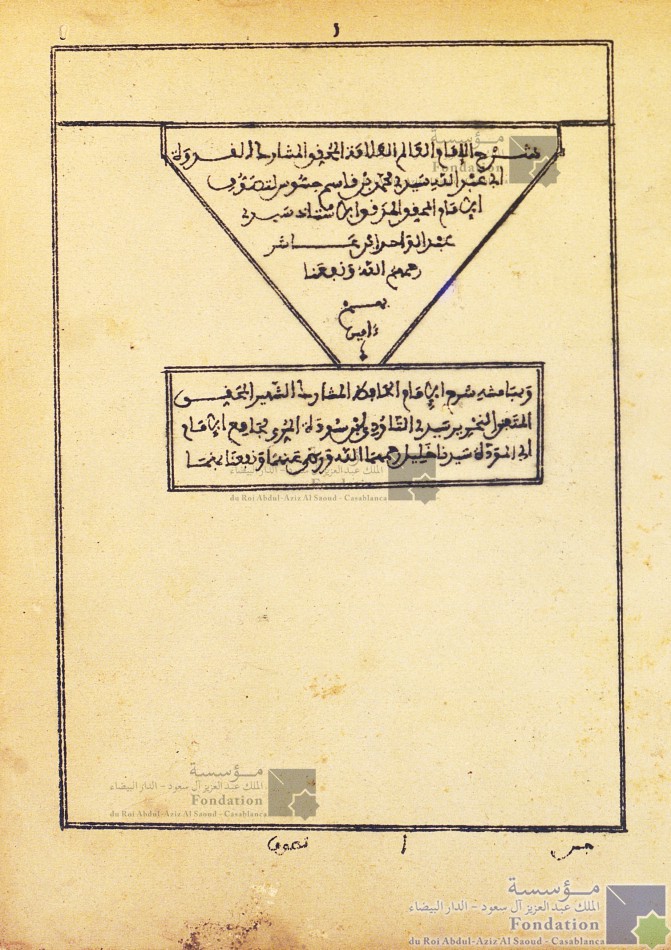 ١
شرح الإمام العالم العلامة المحقق المشارك القدوة
أبي عبد الله سيدي محمد بن قاسم جسوس لتصوف
الإمام المحقق المرفق الأستاذ سيدي
عبد الواحد ابن عـــاشر
رحمهم الله ونفعنا
بهم
ءامين
وبهامشه شرح الإمام الحافظ المشارك الشهير المحقق
المتفنن النحرير سيدي التاودي ابن سودة المري لجامع الإمام
أبي المودة سيدنا خليل رحمهما الله ورضي عنهما ونفعنا بهما
مؤسسة
الملك عبد العزيز آل سعود - الدار البيضاء
Fondation
du Roi Abdul-Aziz Al Saoud - Casablanca
مؤسسة
الملك عبد العزيز آل سعود - الدار البيضاء
Fondation
du Roi Abdul-Aziz Al Saoud - Casablanca
جس ١ تصوف
مؤسسة
الملك عبد العزيز آل سعود - الدار البيضاء
Fondation
du Roi Abdul-Aziz Al Saoud - Casablanca